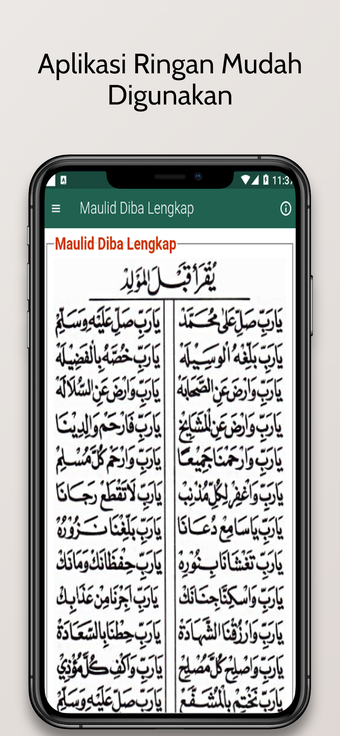 Aplikasi Ringan Mudah
Digunakan
11:37
Maulid Diba Lengkap
Maulid Diba Lengkap
يُقْرَأُ قَبْلَ المَوْلِدْ
يَارَبِّ صَلِّ عَلٰى مُحَمَّدْ يَارَبِّ صَلِّ عَلَيْهِ وَسَلِّمْ
يَارَبِّ بَلِّغْهُ الْوَسِيْلَهْ يَارَبِّ خُصَّهُ بِالْفَضِيْلَهْ
يَارَبِّ وَارْضَ عَنِ الصَّحَابَهْ يَارَبِّ وَارْضَ عَنِ السُّلَالَهْ
يَارَبِّ وَارْضَ عَنِ الْمَشَايِخْ يَارَبِّ فَارْحَمْ وَالِدِيْنَا
يَارَبِّ وَارْحَمْنَا جَمِيْعًا يَارَبِّ وَارْحَمْ كُلَّ مُسْلِمْ
يَارَبِّ وَاغْفِرْ لِكُلِّ مُذْنِبْ يَارَبِّ لَاتَقْطَعْ رَجَانَا
يَارَبِّ يَاسَامِعْ دُعَانَا يَارَبِّ بَلِّغْنَا نَزُوْرُهْ
يَارَبِّ تَغْشَانَا بِنُوْرِهْ يَارَبِّ حِفْظَانَكْ وَمَانَكْ
يَارَبِّ وَاسْكِنَّا جِنَانَكْ يَارَبِّ اَجِرْنَا مِنْ عَذَابِكْ
يَارَبِّ وَارْزُقْنَا الشَّهَادَةْ يَارَبِّ حِطْنَا بِالسَّعَادَةْ
يَارَبِّ وَاصْلِحْ كُلَّ مُصْلِحْ يَارَبِّ وَاكْفِ كُلَّ مُؤْذِيْ
يَارَبِّ نَخْتِمْ بِالْمُشَفَّعْ يَارَبِّ صَلِّ عَلَيْهِ وَسَلِّمْ